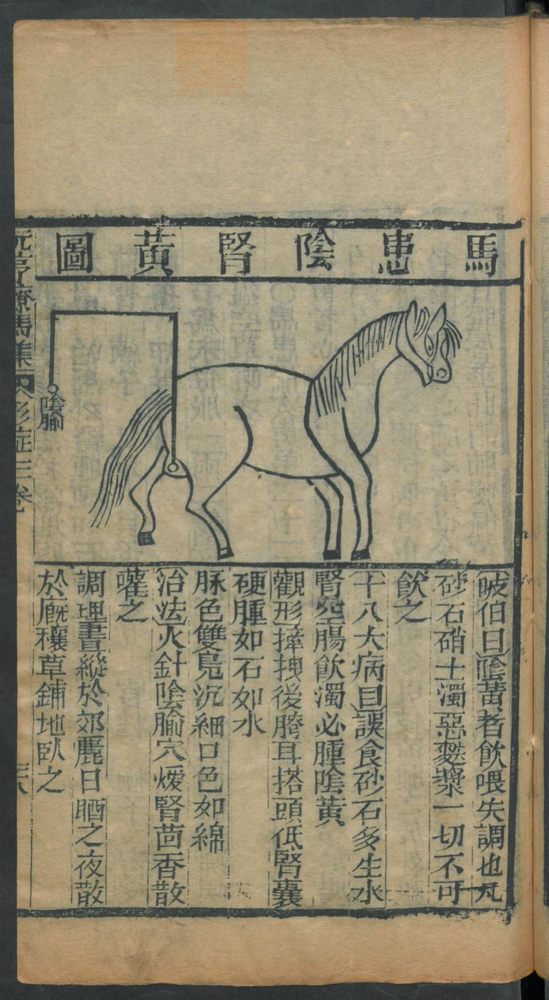 馬患陰腎黃圖
陰腧
岐伯曰陰黃者飲喂失調也凡
砂石硝土濁惡麫漿一切不可
飲之
十八大病曰誤食砂石多生水
腎空腸飲濁必腫陰黃
觀形摔拽後胯耳搭頭低腎囊
硬腫如石如水
脉色雙鳧沉細口色如綿
治法火針陰腧穴煖腎茴香散
灌之
調理晝縱於郊麗日晒之夜散
於廐穰草鋪地臥之
元亨療馬集
三卷